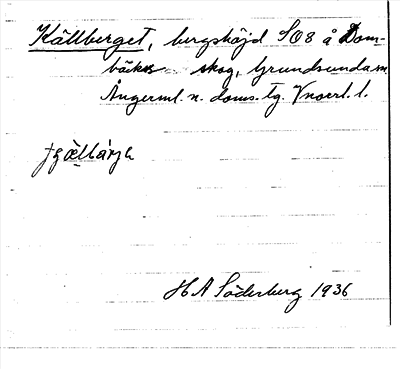 Källberget, bergshöjd SO8 å Dom-
bäcks skog, Grundsunda sn
Ångerml. n. doms. tg. Vnorrl. l.
H A Söderberg 1936